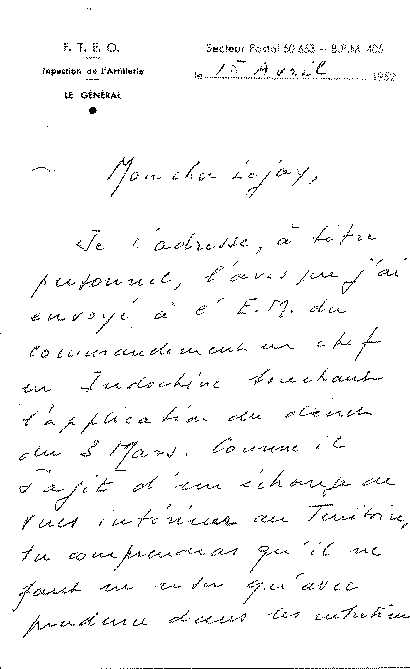 F. T. E. O.
Secteur Postal 50.653 - B.P.M. 405
Inspection de l'Artillerie
le 15 Avril 1952
LE GÉNÉRAL
Mon cher Lejay,
Je t'adresse, à titre
personnel, l'avis que j'ai
envoyé à l'E.M. du
Commandement en chef
en Indochine touchant
l'application du décret
du 8 Mars. Comme il
s'agit d'un échange de
vues intérieur au Territoire,
tu comprendras qu'il ne
faut en user qu'avec
prudence dans les